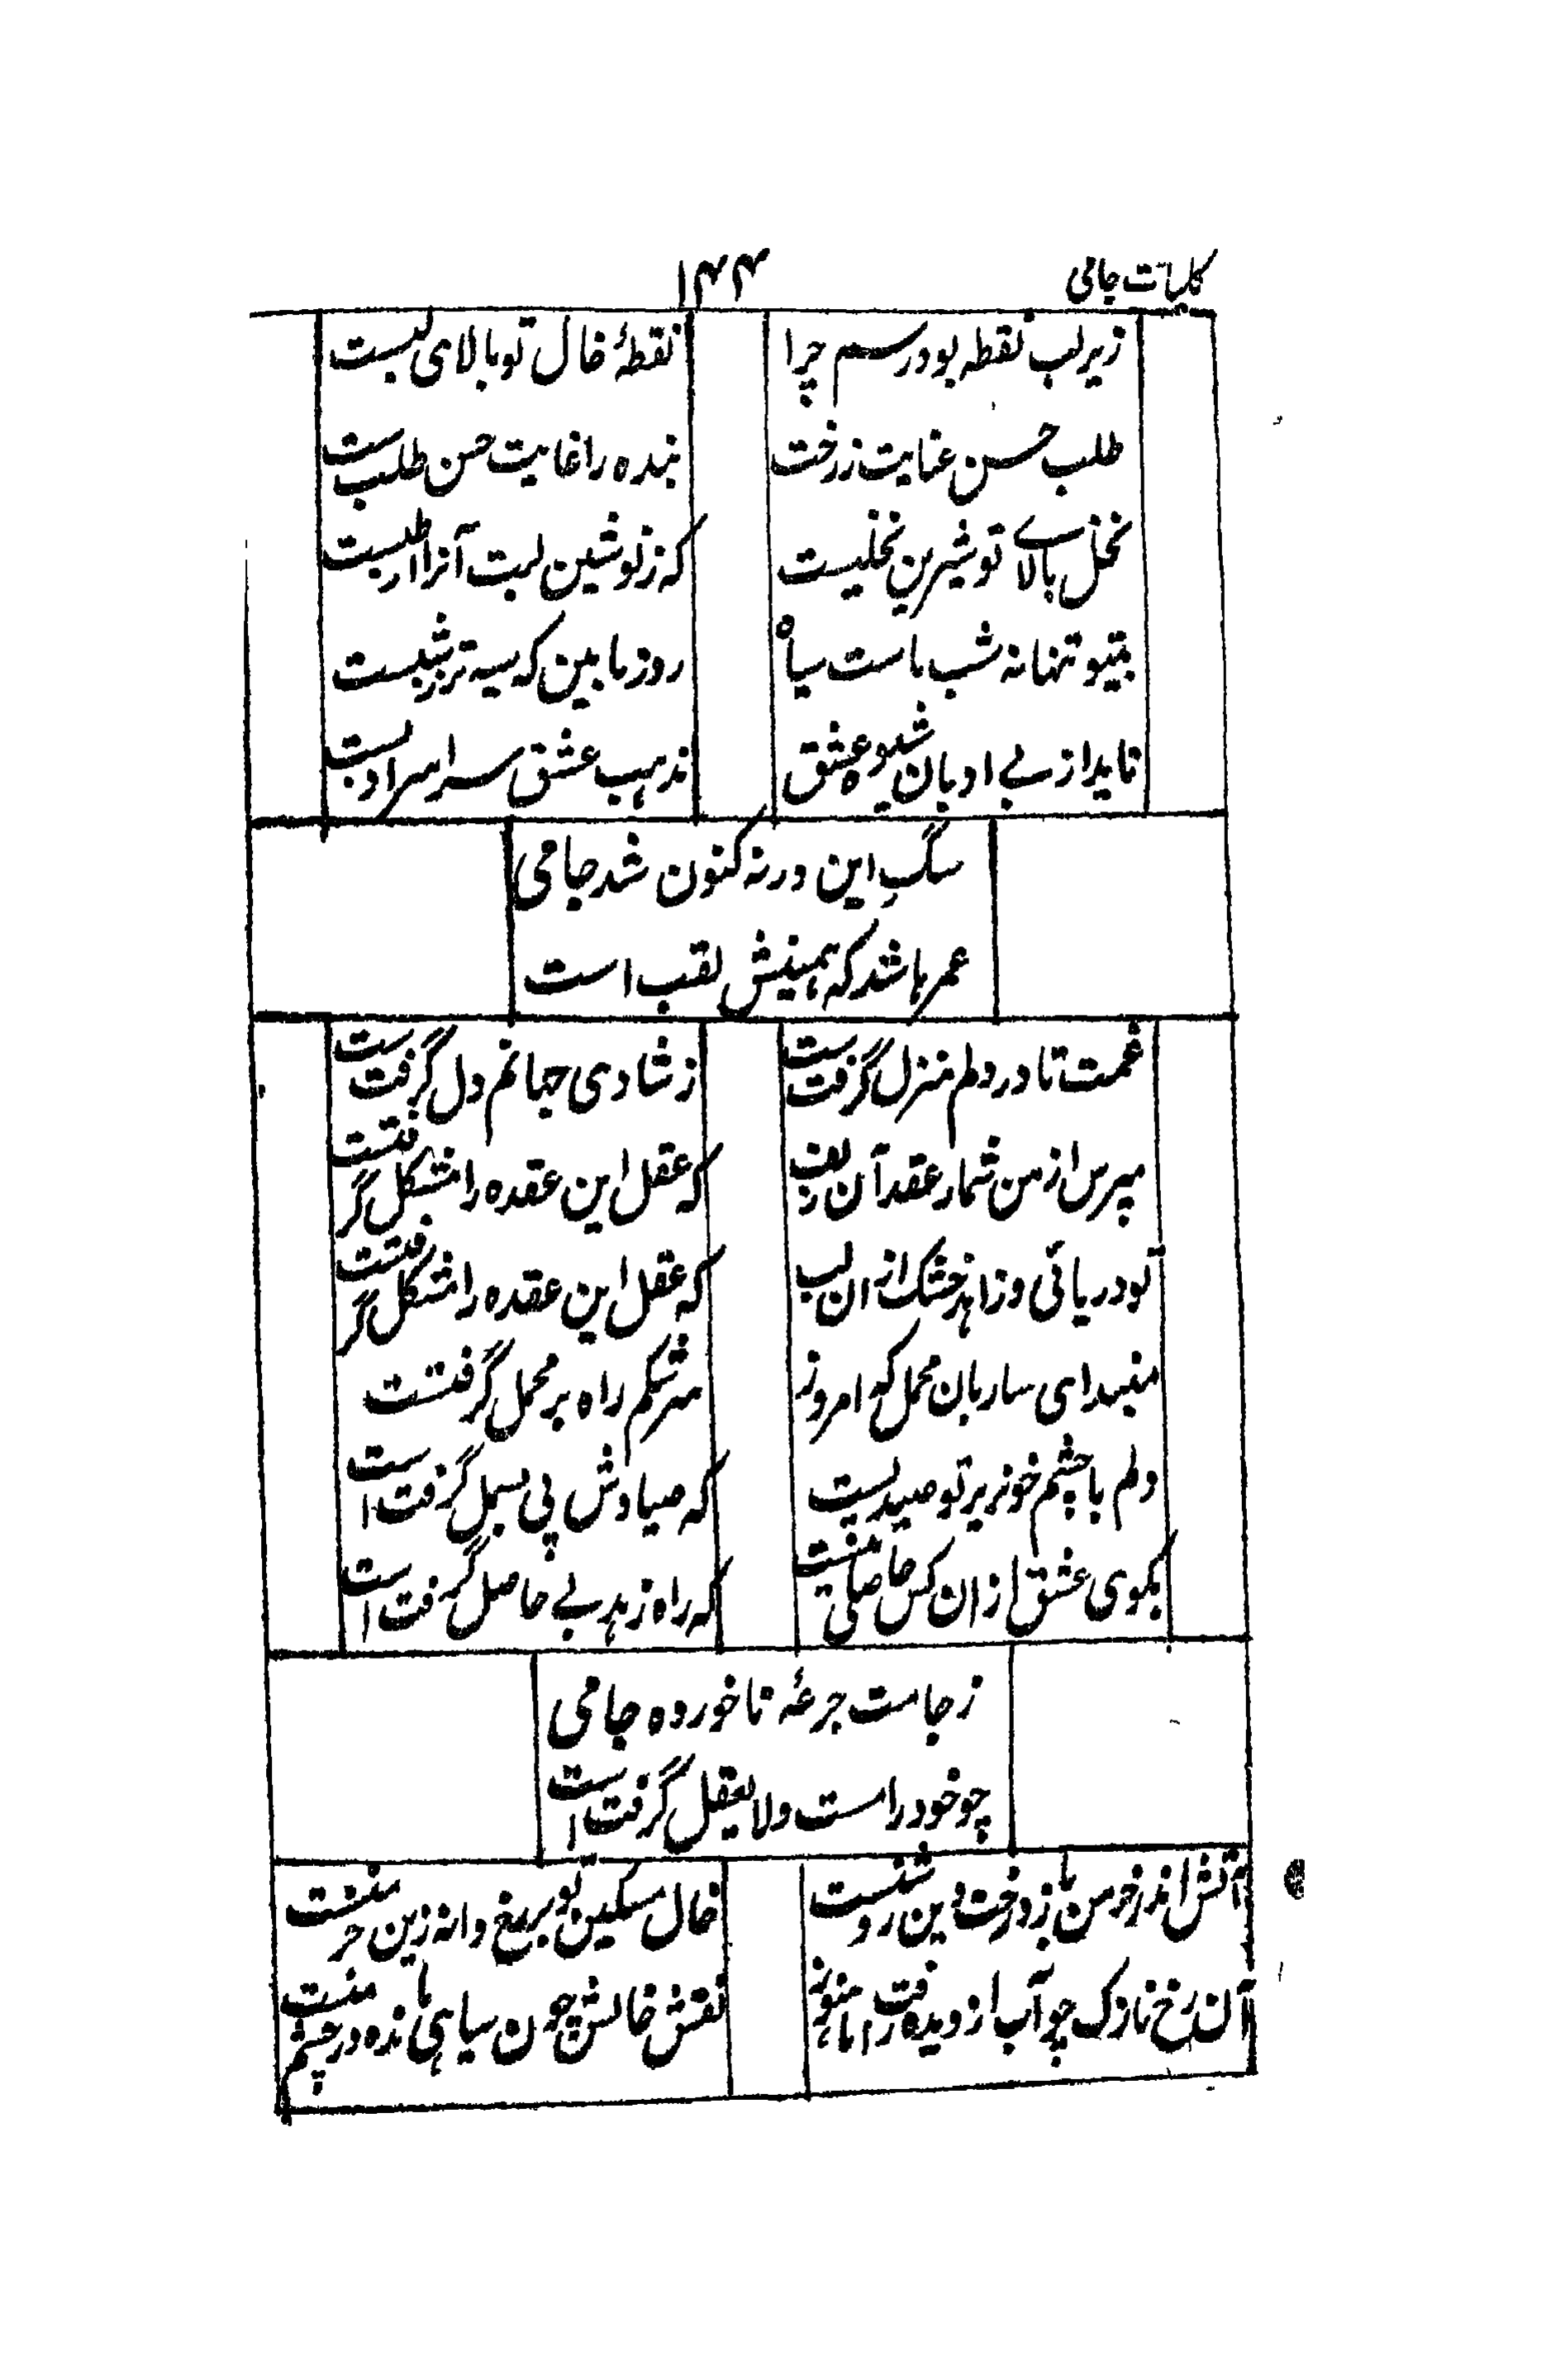 کلیات جامی
۱۴۴
زیر لب نقطه بود رسم چرا
نقطۂ خال تو بالای لبست
طلب حسن عنایت ز رخت
بنده را غایت حسن طلب ست
نخل بالاے تو شیرین نخلیست
که ز نوشین لبت آنرا رطبست
بیتو تنها نه شب ماست سیاه
روز ما بین که سیه تر ز شبست
ناید از بے ادبان شیوه عشق
مذهب عشق سراسر ادبست
سگ این در نه کنون شد جامی
عمرها شد که همینش لقب است
غمت تا در دلم منزل گرفت ست
ز شادی جهانم دل گرفت ست
مپرس از من شمار عقد آن زلف
که عقل این عقده را مشکل گرفتست
تو دریائی و زاهد خشک از ان لب
که عقل این عقده را مشکل گرفتست
مبند ای ساربان محمل که امروز
سرشکم راه بر محمل گرفتست
دلم با چشم خونریز تو صیدیست
که صیادش پی بسمل گرفت است
بکوی عشق از ان کس حاصلی نیست
که راه زهد بے حاصل گرفت است
ز جامت جرعۂ ناخورده جامی
چو خود را مست ولایعقل گرفت است
آتش اندر خرمن ما زد رخت وین روشنست
خال مسکین تو بریغ دانه زین خرمنست
آن رخ نازک چو آب از دیده رفت اما هنوز
نقش خالش چون سیاهی مانده در چشم منست